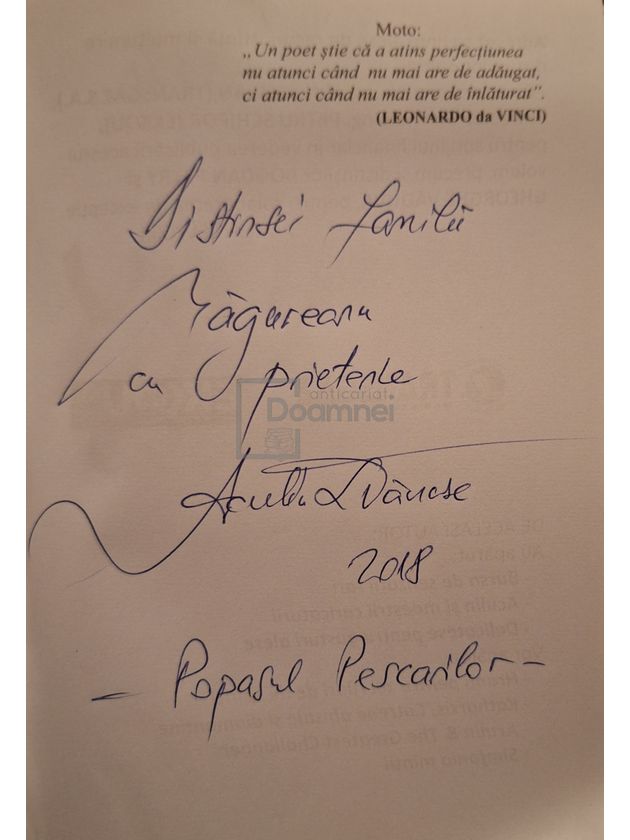 Moto:
„Un poet știe că a atins perfecțiunea
nu atunci când nu mai are de adăugat,
ci atunci când nu mai are de înlăturat”.
(LEONARDO da VINCI)
Distinsei familii
Măgureanu
cu prietenie
anticariat
Doamnei
Aculin Tănase
2018
- Popasul Pescarilor -